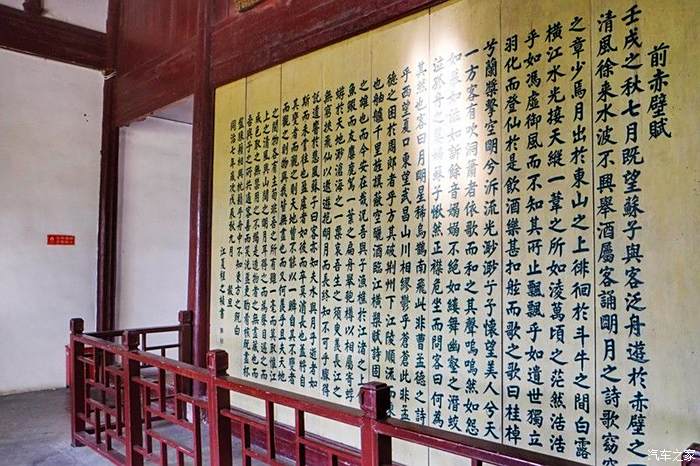 前赤壁賦
壬戌之秋七月既望蘇子與客泛舟遊於赤壁之
清風徐來水波不興舉酒屬客誦明月之詩歌窈
之章少焉月出於東山之上徘徊於斗牛之間白露
橫江水光接天縱一葦之所如淩萬頃之茫然浩浩
乎如馮虛御風而不知其所止飄飄乎如遺世獨立
羽化而登仙於是飲酒樂甚扣舷而歌之歌曰桂棹
兮蘭槳擊空明兮泝流光渺渺兮予懷望美人兮天
一方客有吹洞簫者依歌而和之其聲嗚嗚然如怨
如慕如泣如訴餘音嫋嫋不絕如縷舞幽壑之潛蛟
泣孤舟之嫠婦蘇子愀然正襟危坐而問客曰何為
其然也客曰月明星稀烏鵲南飛此非曹孟德之詩
乎西望夏口東望武昌山川相繆鬱乎蒼蒼此非孟
德之困於周郎者乎方其破荊州下江陵順流而
也舳艫千里旌旗蔽空釃酒臨江橫槊賦詩固一
之雄也而今安在哉況吾與子漁樵於江渚之上
魚蝦而友麋鹿駕一葉之扁舟舉匏樽以相屬寄蜉
蝣於天地渺滄海之一粟哀吾生之須臾羨長江之
無窮挾飛仙以遨遊抱明月而長終知不可乎驟得
託遺響於悲風蘇子曰客亦知夫水與月乎逝者如
斯而未嘗往也盈虛者如彼而卒莫消長也蓋將自
其變者而觀之則天地曾不能以一瞬自其不變者
而觀之則物與我皆無盡也而又何羨乎且夫天地
之間物各有主苟非吾之所有雖一毫而莫取惟江
上之清風與山間之明月耳得之而為聲目遇之而
成色取之無禁用之不竭是造物者之無盡藏也而
吾與子之所共適客喜而笑洗盞更酌肴核既盡杯
盤狼藉相與枕藉乎舟中不知東方之既白
同治七年歲次戊辰秋九月 穀旦
江夏程之楨書
汽车之家